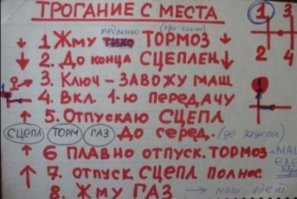 ТРОГАНИЕ С МЕСТА
1 3
2 4
медленно (при жиме)
1 Жму тихо ТОРМОЗ
2. До конца СЦЕПЛЕН.
3. Ключ - ЗАВОЖУ МАШ
4. Вкл. 1-ю ПЕРЕДАЧУ
5. Отпускаю СЦЕПЛ
СЦЕПЛ ТОРМ ГАЗ До серед. (до
6 ПЛАВНО отпуск. ТОРМОЗ - МАШ
7. отпуск. СЦЕПЛ полнос.
8. Жму ГАЗ → маш едет